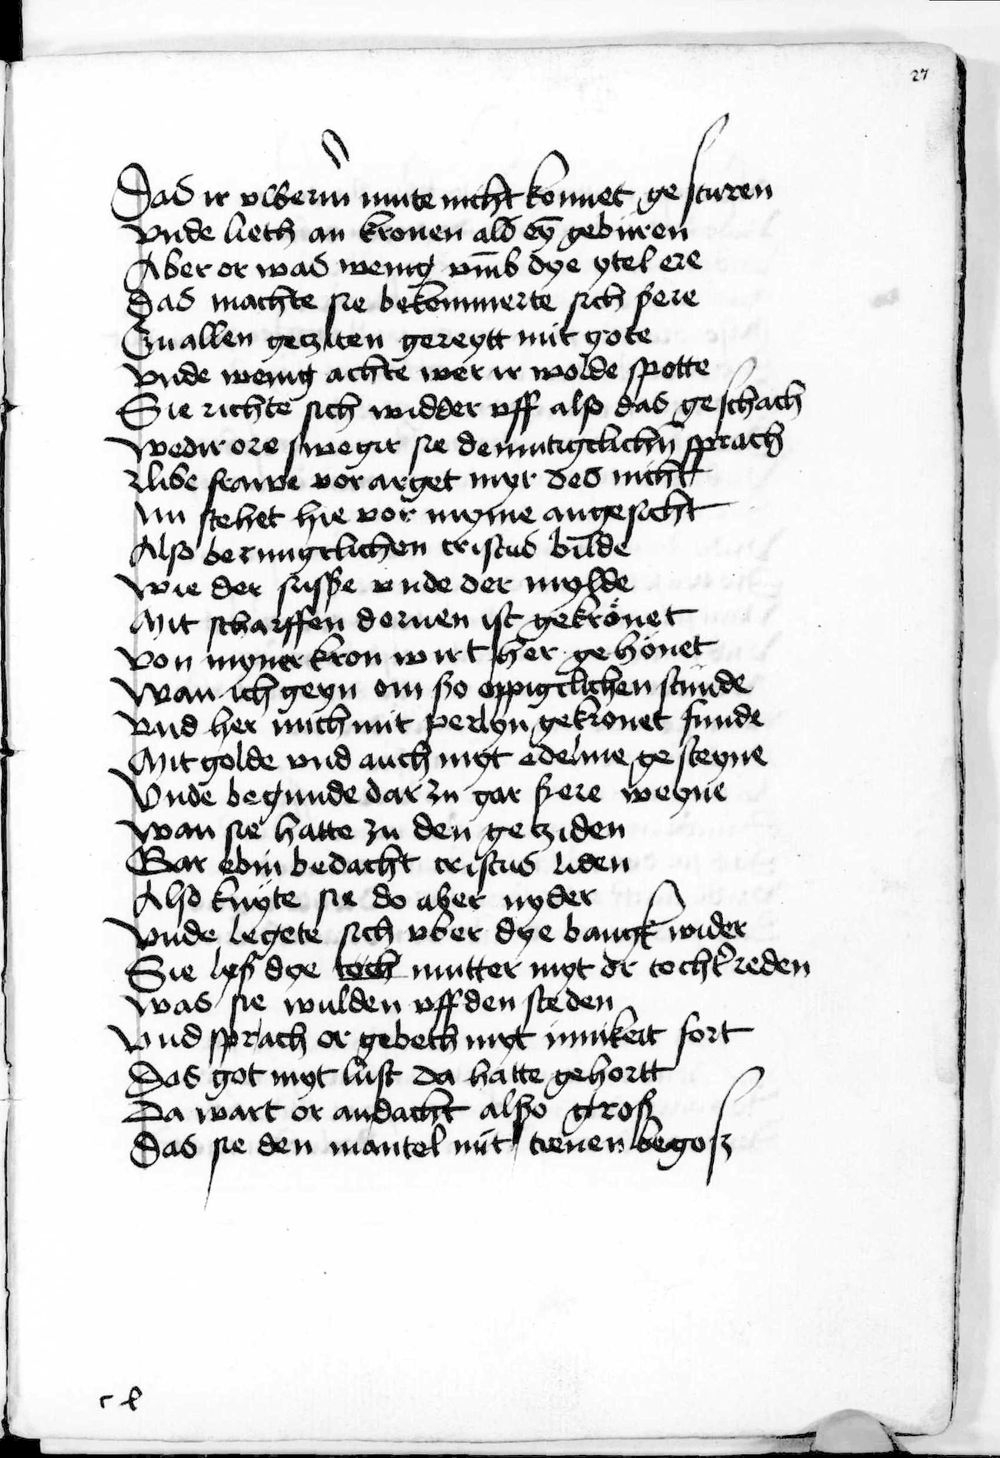 27
Das ir vlbern mute nicht konnet gesturen
vnde lieth an kronen als ey gebüren
Aber or was wenig vmb dye ytel ere
Das machte sie bekommerte sich sere
Zu allen getziten gereytt mit gote
vnde wenig achte wer ir wolde spotte
Sie richte sich widder vff also das geschach
wedir ore sweger sie demutigclichn sprach
libe frawe vorarget myr des nicht
Nu stehet hie vor myme angesicht
Also bermigclichen cristus bilde
wie der susse vnde der mylde
Mit scharffen dornen ist gekrönet
von myner kron wirt her gehönet
wan ich geyn om so oppigclichen stunde
vnd her mich mit perlyn gekronet funde
Mit golde vnd auch myt edelme gesteyne
Vnde begunde dar zu gar sere weyne
wan sie hatte zu den getziden
Gar ebin bedacht cristus liden
Also knyte sie do aber nyder
vnde legete sich vber dye bangk wider
Sie lyß dye toch mutter myt dr tochter reden
was sie wulden vff den steden
vnd sprach or gebeth myt innikeit fort
Das got myt lust da hatte gehortt
Da wart or andacht also groß
Das sie den mantel mit trenen begoß